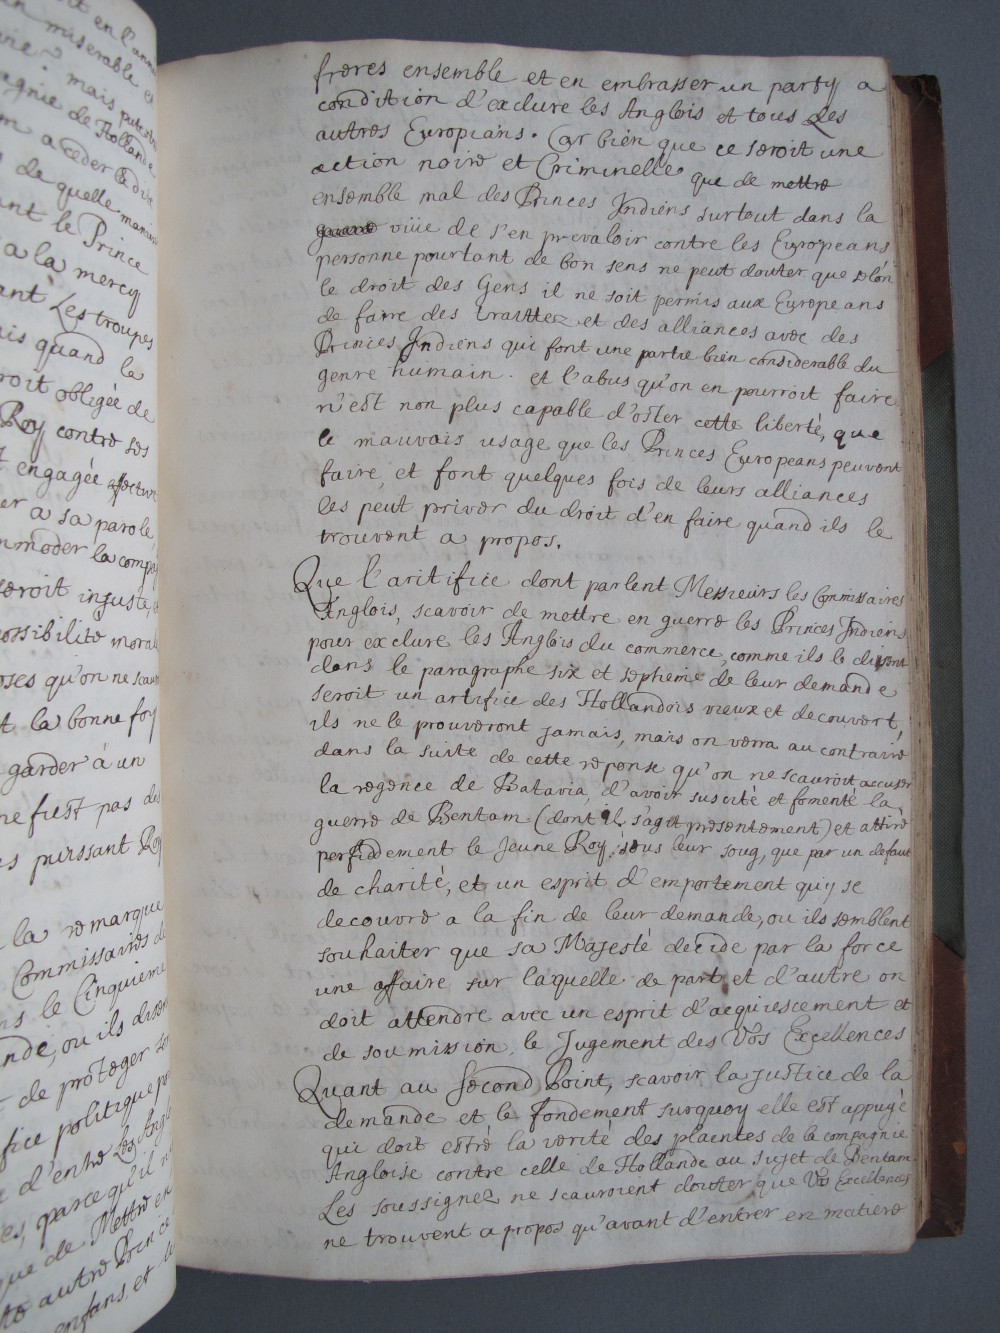 it en l'anné
n miserable et
ne. mais put estre
agnie de Hollande
m a ceder le dit
de quelle maniere
ant le Prince
a la mercy
ant. Les troupes
is quand la
roit obligée de
Roy contre ses
engagée
er a sa parole,
mmoder la compa
seroit injuste,
possibilité morale
oses qu'on ne scau
t la bonne foy
garder à un
ne fust pas des
es puissant Roy
la remarque
Commissaires de
ns le Cinquieme
nde, ou ils disent
de proteger
fice politique
d'entre les Angl
es, parce qu'il n
que de Mettre en
autre Prince
enfans, et
freres ensemble et en embrasser un party a
condition d'exclure les Anglois et tous les
autres Europians. Car bien que ce seroit une
action noire et Criminelle que de mettre
ensemble mal des Princes Indiens surtout dans la
viüe de s'en prevaloir contre les Europeans
personne pourtant de bon sens ne peut douter que selon
le droit des Gens il ne soit permis aux Europeans
de faire des traittez et des alliances avec des
Princes Indiens qui font une partie bien considerable du
genre humain. et l'abus qu'on en pourroit faire
n'est non plus capable d'oster cette liberté, que
le mauvais usage que les Princes Europeans peuvent
faire, et font quelques fois de leurs alliances
les peut priver du droit d'en faire quand ils le
trouvent a propos.
Que l'aritifice dont parlent Messieurs les Commissaires
Anglois, scavoir de mettre en guerre les Princes Indiens
pour exclure les Anglois du commerce, comme ils le disent
dans le paragraphe six et sephieme de leur demande
seroit un artifice des Hollandois vieux et decouvert,
ils ne le prouveront jamais, mais on verra au contraire
dans la suite de cette reponse qu'on ne scauroit accuser
la regence de Batavia, d'avoir suscité et fomenté la
guerre de Bentam (dont il s'agit presentement) et attiré
perfidement le Jeune Roy, sous leur joug, que par un defaut
de charité, et un esprit d'emportement qui se
decouvre a la fin de leur demande, ou ils semblent
souhaiter que sa Majesté decide par la force
une affaire sur laquelle de part et d'autre on
doit attendre avec un esprit d'acquiescement et
de soumission, le Jugement des Vos Excellences
Quant au Second Point, scavoir la justice de la
demande et le fondement surquoy elle est appuyé
qui doit estre la verité des plaintes de la compagnie
Angloise contre celle de Hollande au sujet de Bentam
Les soussignez ne scauroient douter que Vos Excellences
ne trouvent a propos qu'avant d'entrer en matiere